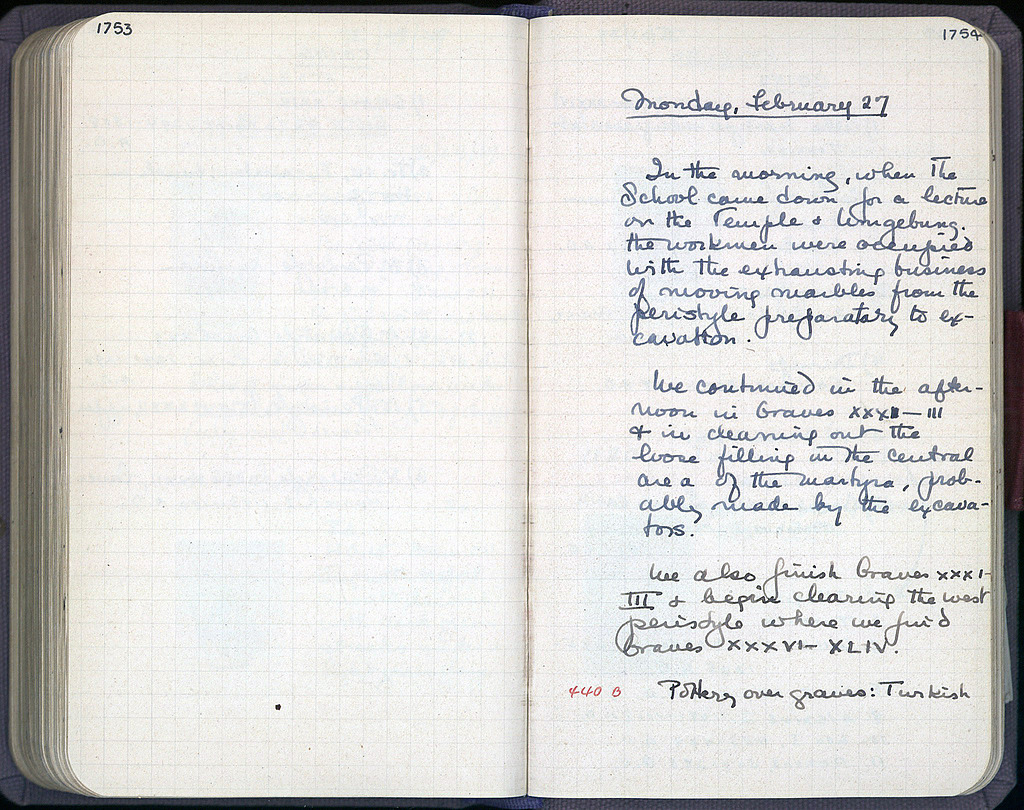 1753
1754
Monday, February 27
In the morning, when The
School came down for a lecture
on the Temple & Umgebung.
the workmen were occupied
with the exhausting business
of moving marbles from the
peristyle preparatory to ex-
cavation.
We continued in the after-
noon in Graves XXXII-III
& in cleaning out the
loose filling in the central
area of the martyra, prob-
ably made by the excava-
tors.
We also finish Graves XXXI-
III & begin clearing the west
peristyle where we find
Graves XXXVI-XLIV.
440 B Pottery over graves: Turkish